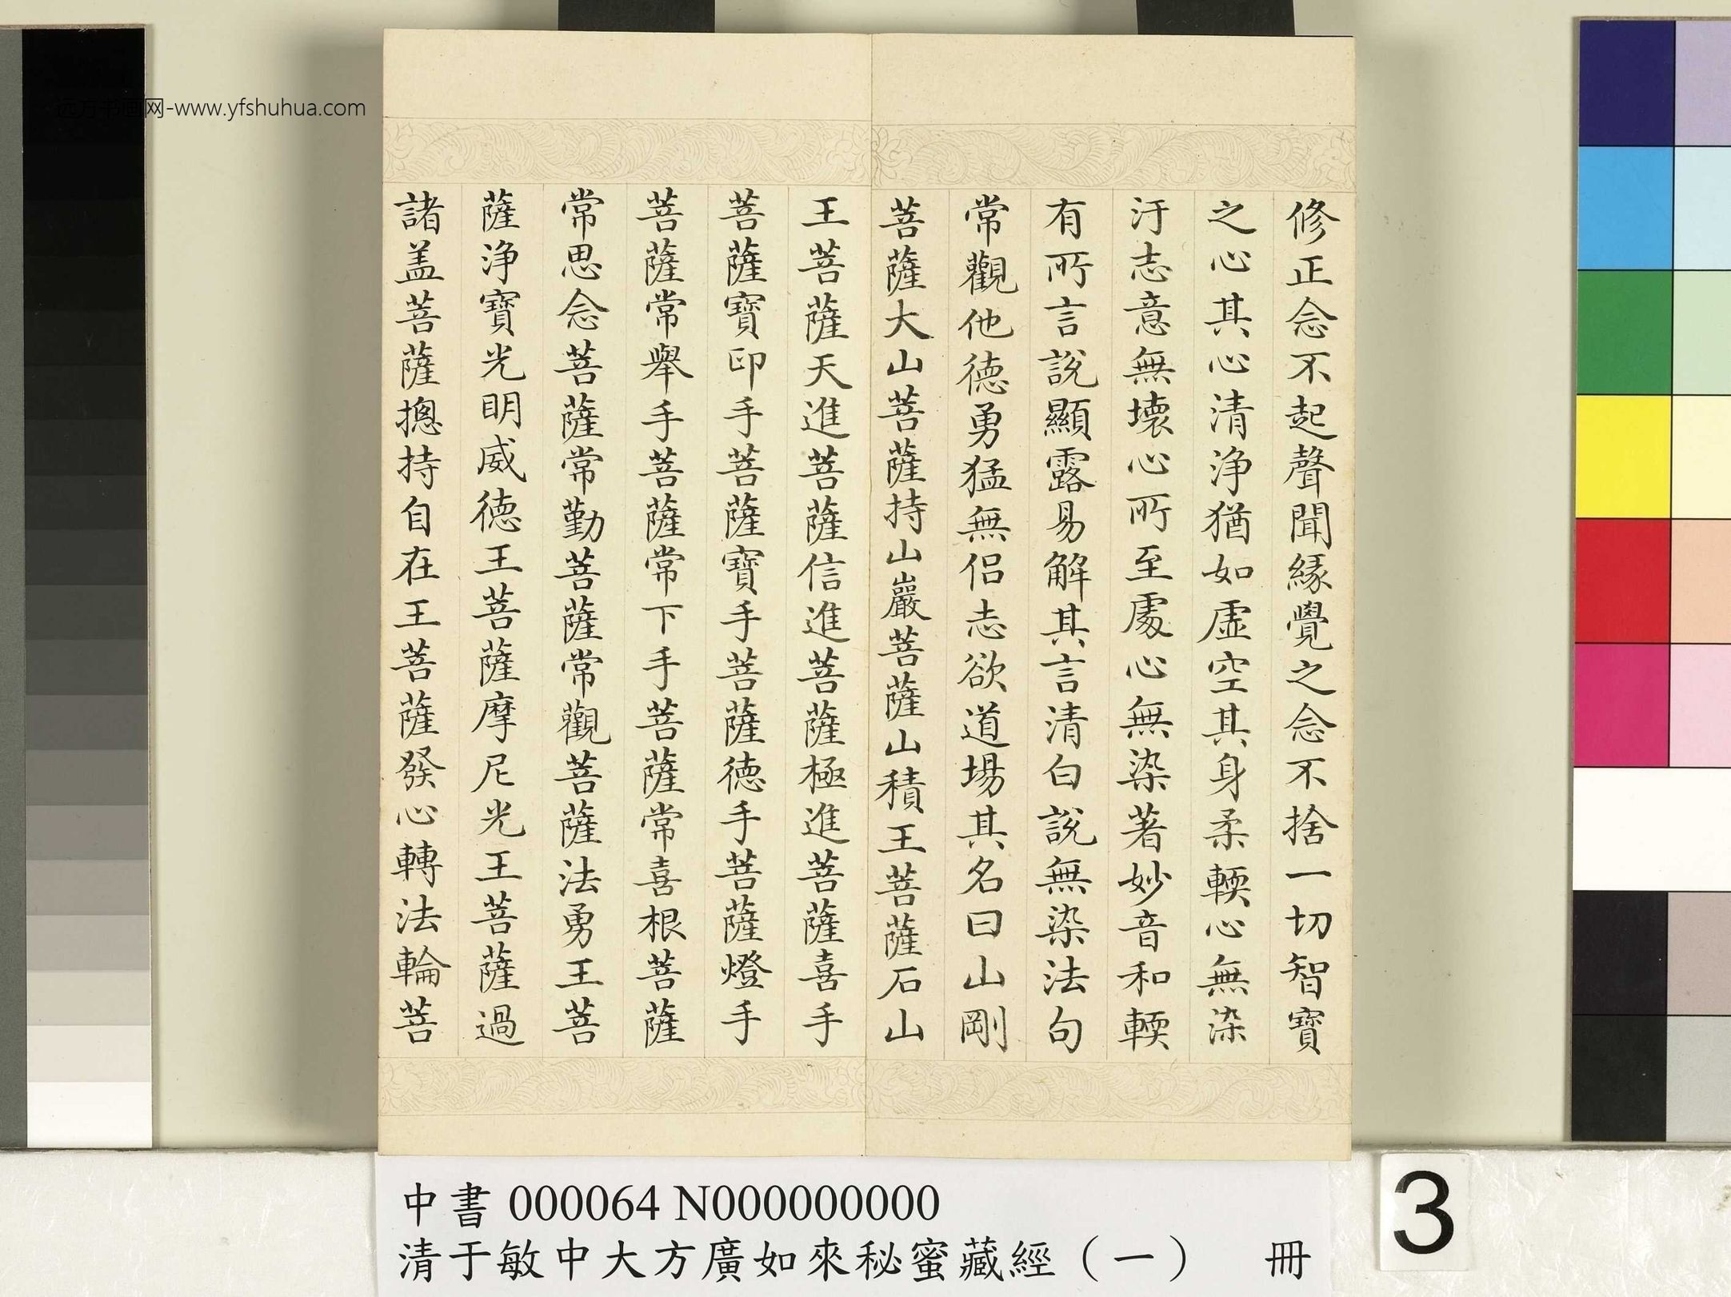 修正念不起聲聞緣覺之念不捨一切智寶
之心其心清淨猶如虛空其身柔輭心無染
汙志意無壞心所至處心無染著妙音和輭
有所言說顯露易解其言清白說無染法句
常觀他德勇猛無侶志欲道場其名曰山剛
菩薩大山菩薩持山巖菩薩山積王菩薩石山
王菩薩天進菩薩信進菩薩極進菩薩喜手
菩薩寶印手菩薩寶手菩薩德手菩薩燈手
菩薩常舉手菩薩常下手菩薩常喜根菩薩
常思念菩薩常勤菩薩常觀菩薩法勇王菩
薩淨寶光明威德王菩薩摩尼光王菩薩過
諸盖菩薩摠持自在王菩薩發心轉法輪菩
网-www.yfshuhua.com
中書 000064 N000000000
清于敏中大方廣如來秘蜜藏經（一） 冊
3